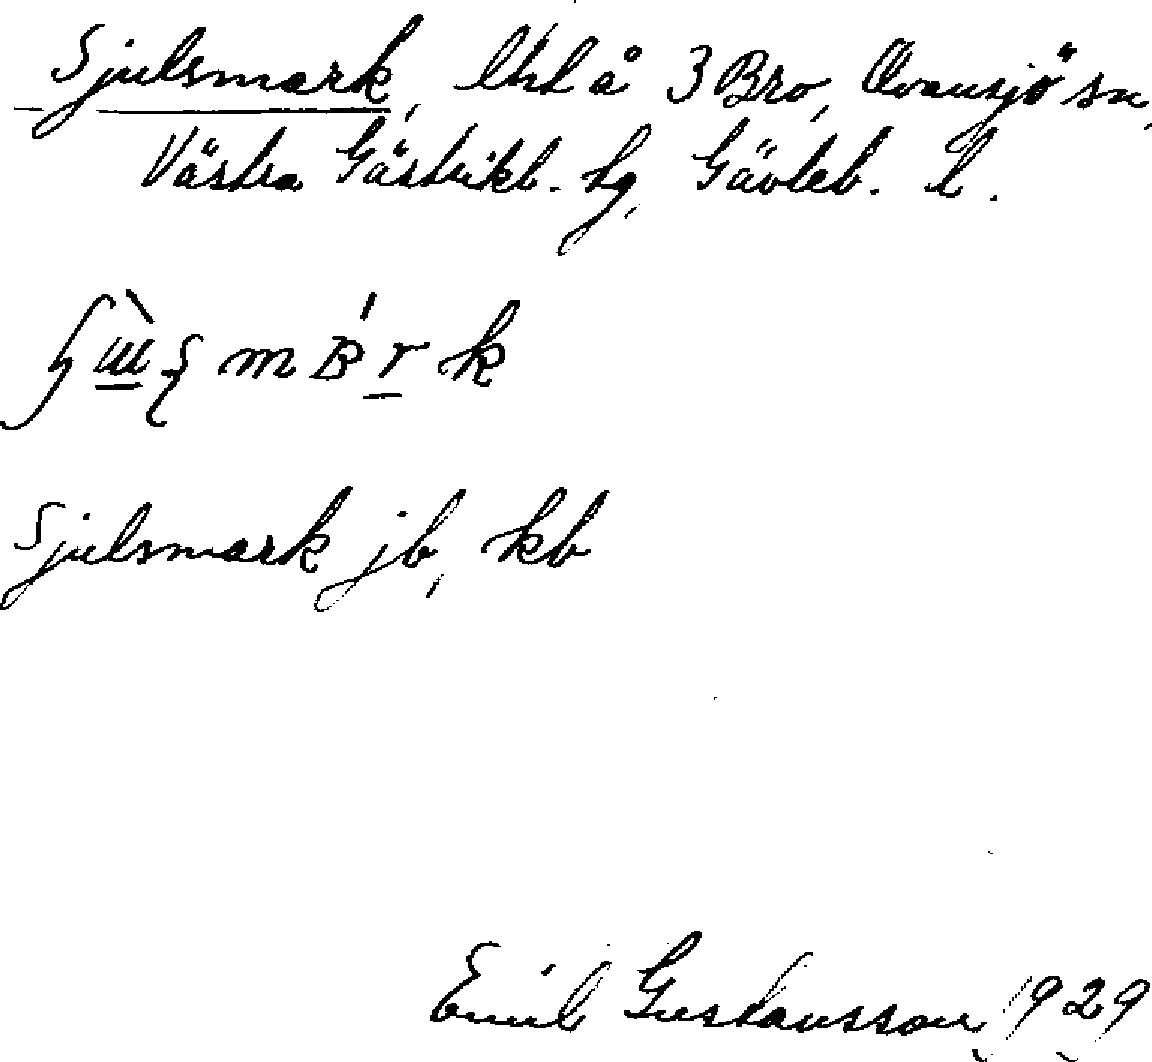 Sjulsmark, lhl å 3 Bro, Ovansjö sn,
Västra Gästrikl. hg, Gävleb. l.
Sjulsmark jb, kb
Emil Gustavsson, 1929